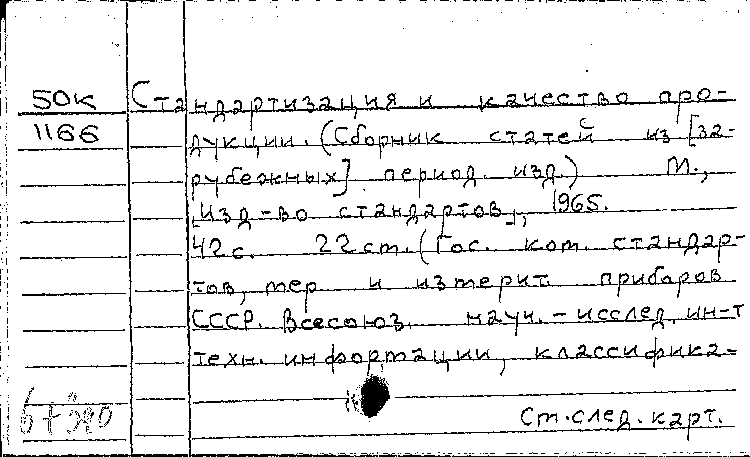 50К Стандартизация и качество про-
1166 дукции. (Сборник статей из [за-
рубежных] период. изд.) М.,
[Изд-во стандартов], 1965.
42с. 22см. (Гос. ком. стандар-
тов, мер и измерит. приборов
СССР. Всесоюз. науч.-исслед. ин-т
техн. информации, классифика-
См.след.карт.